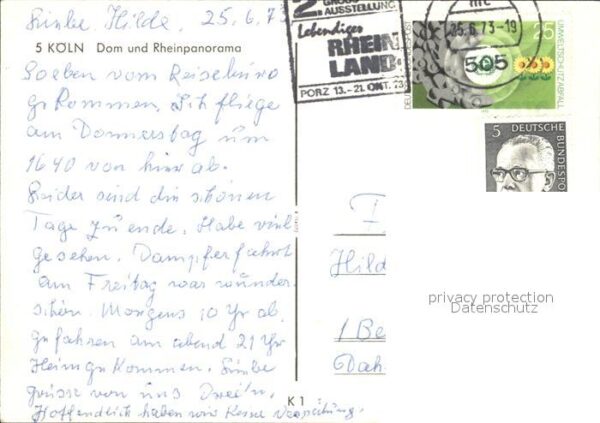 Liebe Hilde, 25.6.73
5 KÖLN Dom und Rheinpanorama
Soeben vom Reisebüro
gekommen. Ich fliege
am Donnerstag um
1640 von hier ab.
Leider sind die schönen
Tage zu ende. Habe viel
gesehen. Dampferfahrt
am Freitag war wunder
schön. Morgens 10 Uhr ab
gefahren am abend 21 Uhr
Heimgekommen. Liebe
grüsse von uns Zwei'n.
Hoffendlich haben wir keine Verspätung.
K 1
AUSSTELLUNG
Lebendiges
RHEIN
LAND
PORZ 13.-21. OKT. 73
25.6.73-19
505
25
UMWELTSCHUTZ: ABFALL
5
DEUTSCHE
BUNDESPO
F
Hild
1 Be
Dah
privacy protection
Datenschutz